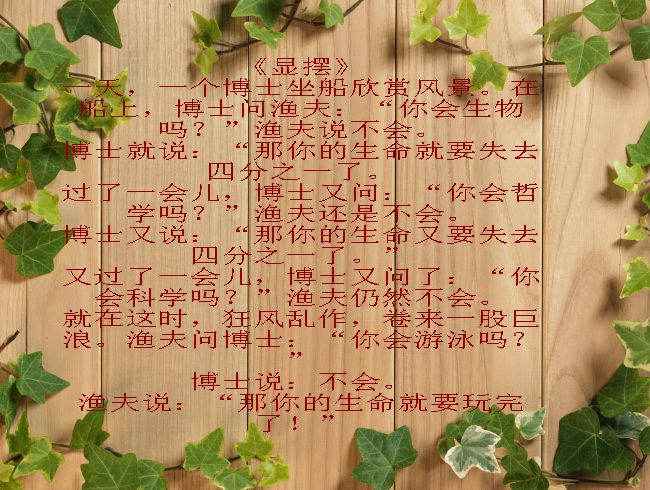 《显摆》
一天，一个博士坐船欣赏风景。在
船上，博士问渔夫：“你会生物
吗？”渔夫说不会。
博士就说：“那你的生命就要失去
四分之一了。
过了一会儿，博士又问：“你会哲
学吗？”渔夫还是不会。
博士又说：“那你的生命又要失去
四分之一了。”
又过了一会儿，博士又问了：“你
会科学吗？”渔夫仍然不会。
就在这时，狂风乱作，卷来一股巨
浪。渔夫问博士：“你会游泳吗？
”
博士说：不会。
渔夫说：“那你的生命就要玩完
了！”